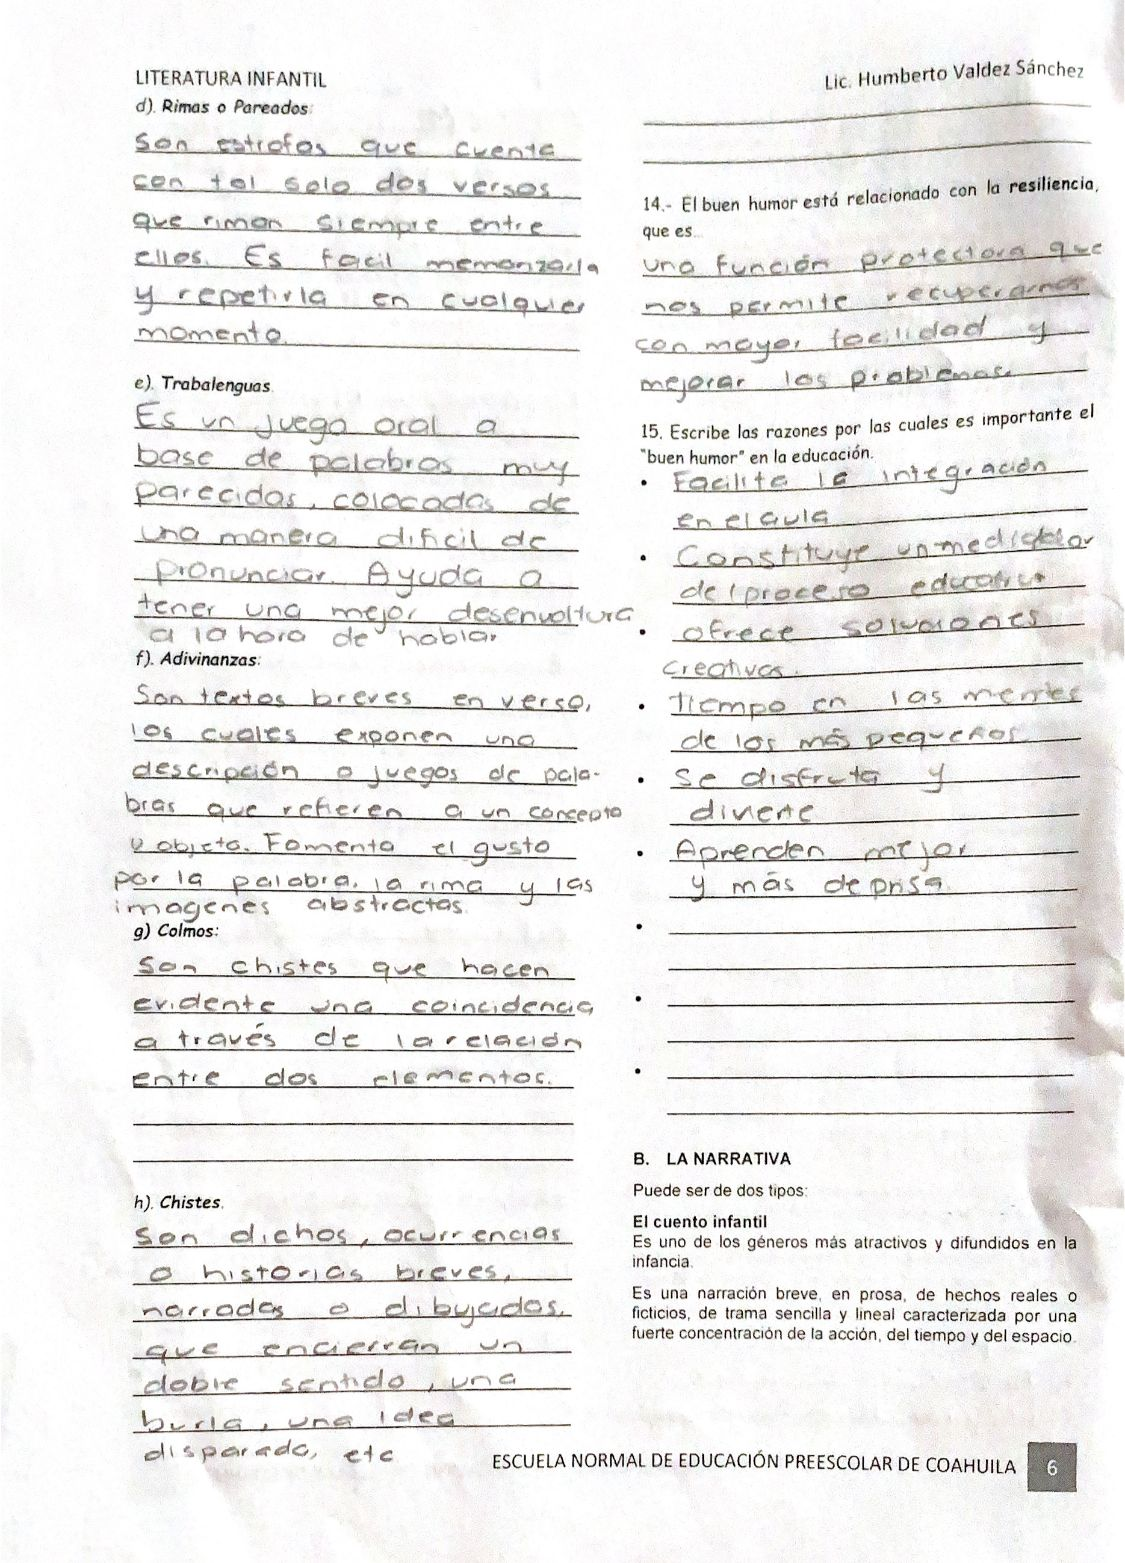 LITERATURA INFANTIL
Lic. Humberto Valdez Sánchez
d). Rimas o Pareados:
Son estrofas que cuenta
con tal solo dos versos
que riman siempre entre
ellos. Es facil memorizarla
y repetirla en cualquier
momento.
e). Trabalenguas.
Es un juego oral a
base de palabras muy
parecidas, colocadas de
una manera dificil de
pronunciar. Ayuda a
tener una mejor desenvoltura
a la hora de hablar
f). Adivinanzas:
Son textos breves en verso,
los cuales exponen una
descripción o juegos de pala-
bras que refieren a un concepto
u objeto. Fomenta el gusto
por la palabra, la rima y las
imagenes abstractas.
g) Colmos:
Son chistes que hacen
evidente una coincidencia
a través de la relación
entre dos elementos.
h). Chistes.
Son dichos, ocurrencias
o historias breves,
narradas o dibujadas,
que encierran un
doble sentido, una
burla, una idea
disparada, etc
14.- El buen humor está relacionado con la resiliencia,
que es...
una función protectora que
nos permite recuperarnos
con mayor facilidad y
mejorar los problemas.
15. Escribe las razones por las cuales es importante el
"buen humor" en la educación.
• Facilita la integración
en el aula
• Constituye un mediador
del proceso educativo
• ofrece soluciones
creativas.
• Tiempo en las mentes
de los más pequeños
• Se disfruta y
divierte
• Aprenden mejor
y más deprisa.
•
•
•
B. LA NARRATIVA
Puede ser de dos tipos:
El cuento infantil
Es uno de los géneros más atractivos y difundidos en la
infancia.
Es una narración breve, en prosa, de hechos reales o
ficticios, de trama sencilla y lineal caracterizada por una
fuerte concentración de la acción, del tiempo y del espacio.
ESCUELA NORMAL DE EDUCACIÓN PREESCOLAR DE COAHUILA 6